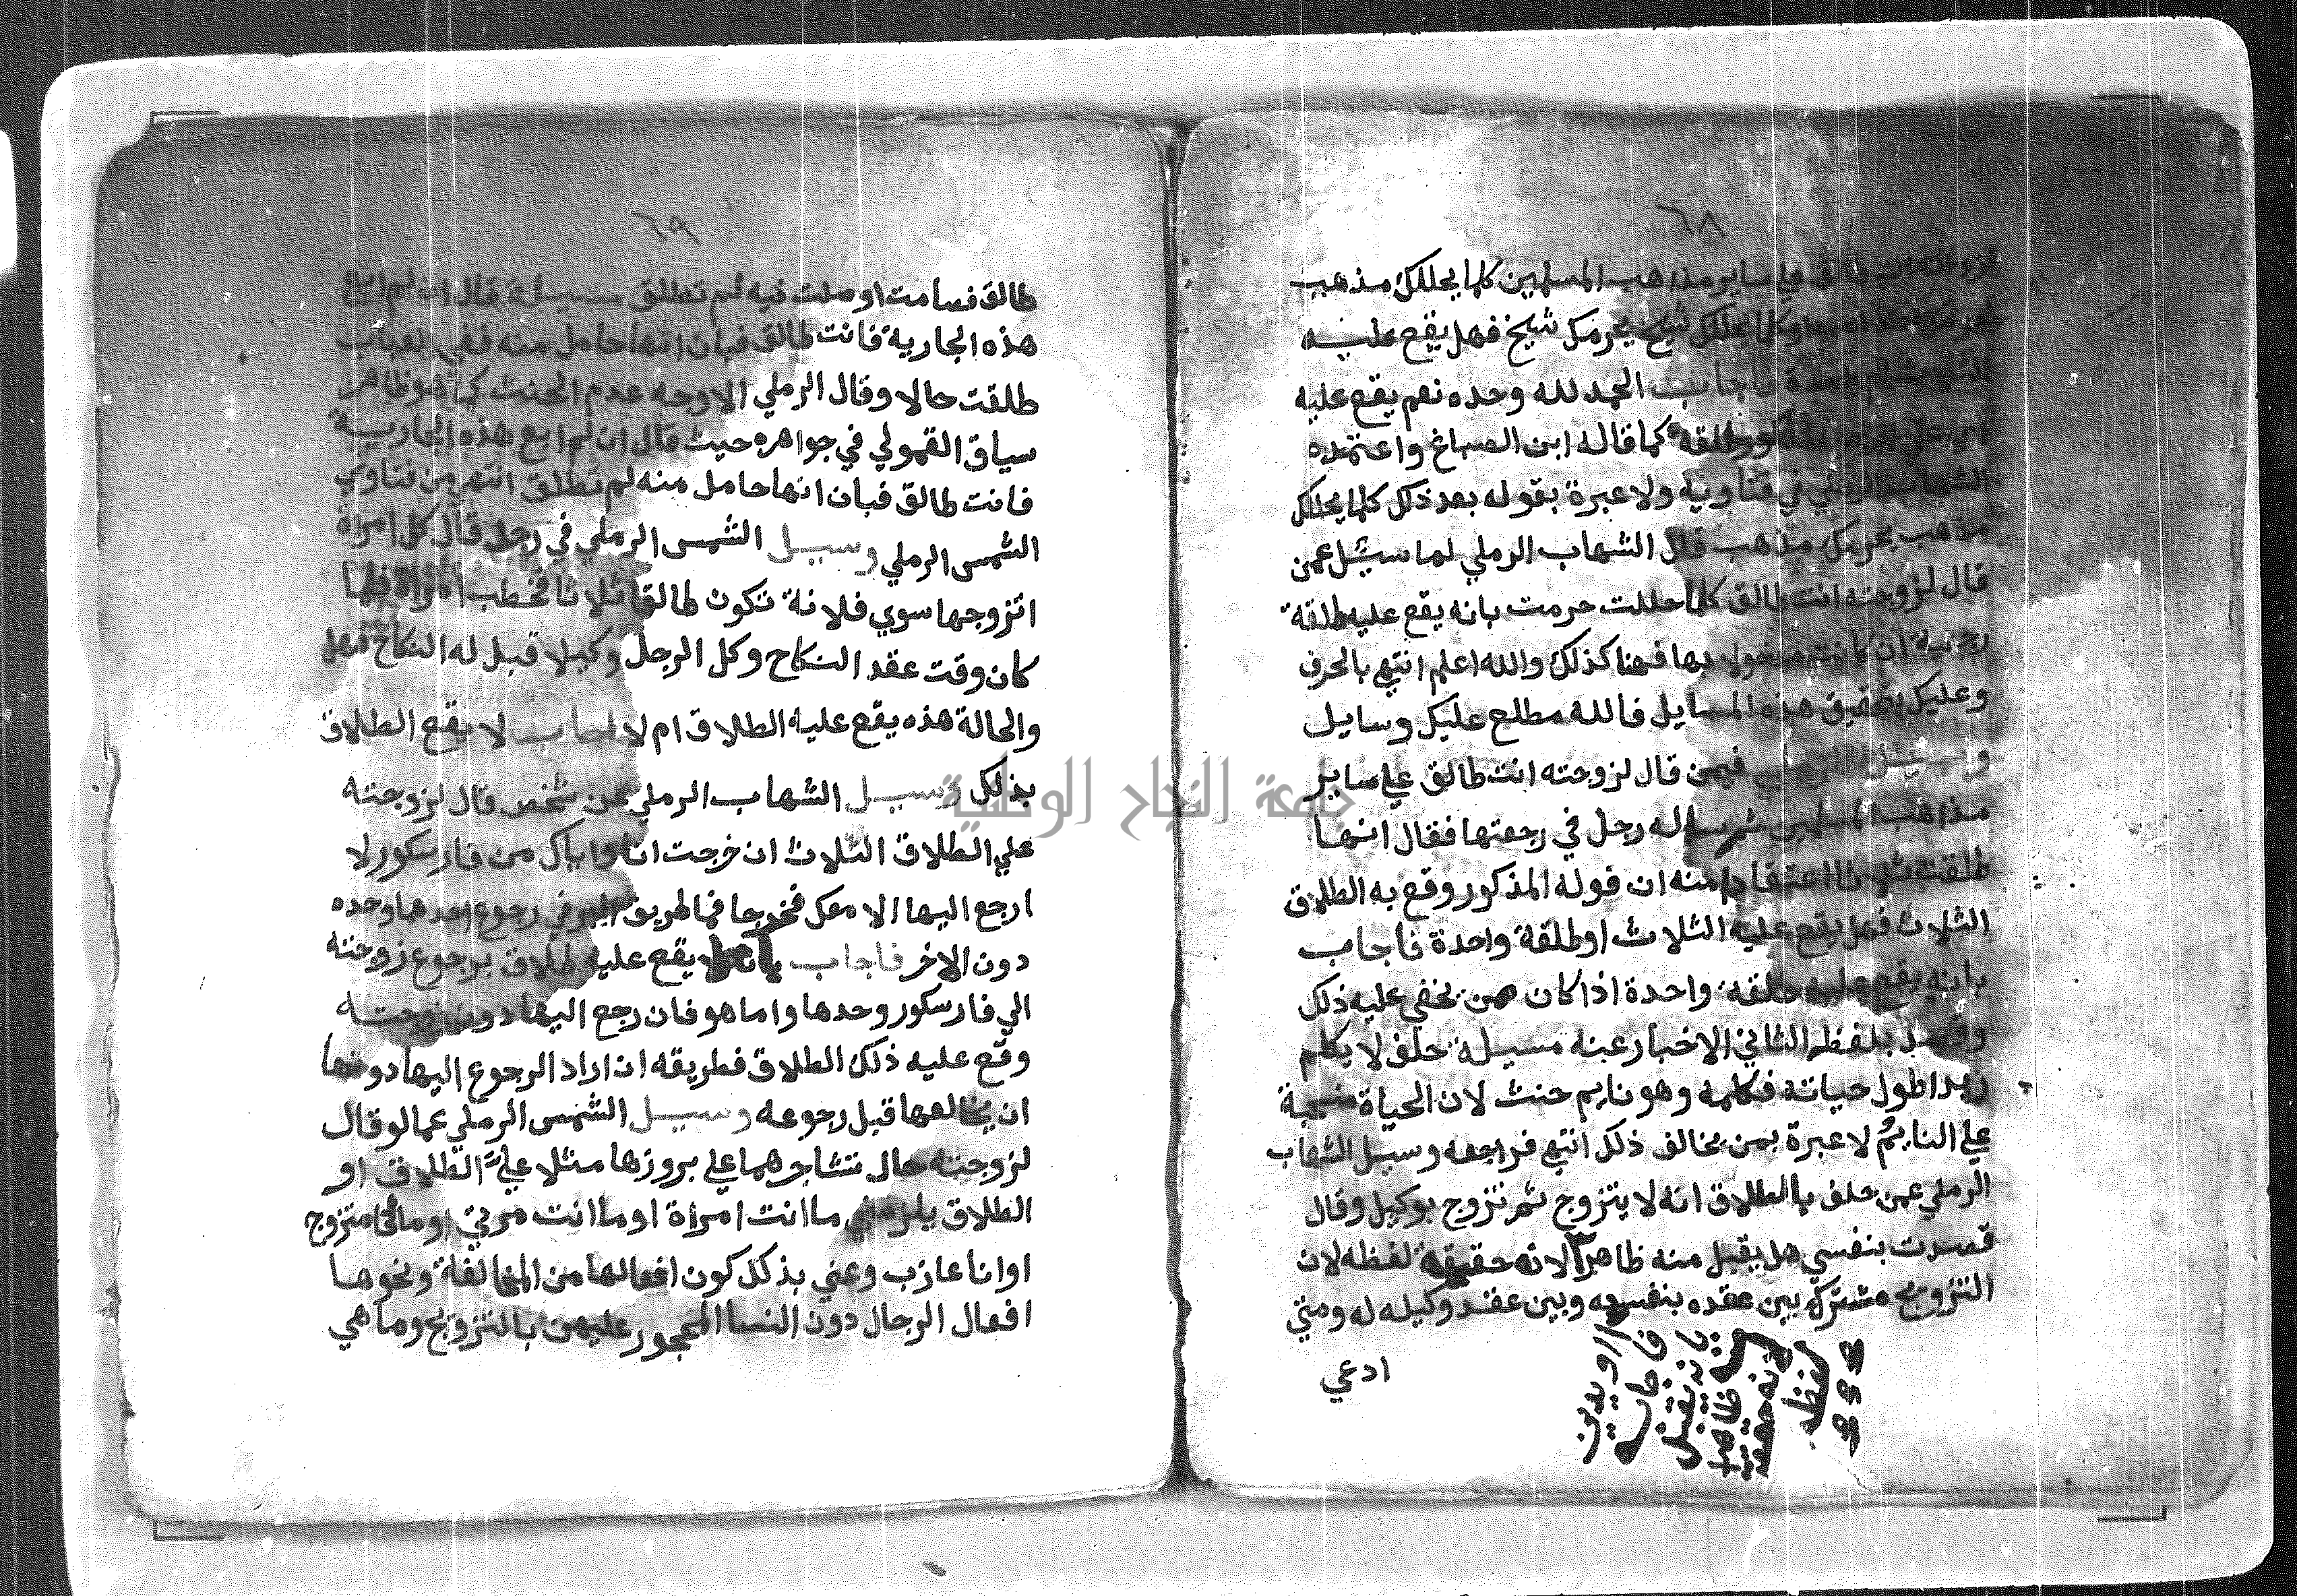 ٦٨
لزوجته انت طالق علي ساير مذاهب المسلمين كلما يحللك مذهب
يحرمك مذهب او كلما يحللك شيخ يحرمك شيخ فهل يقع عليه
الثلاث ام واحدة اجاب الحمد لله وحده نعم يقع عليه
طلقة كما قاله ابن الصباغ واعتمده
الشهاب الرملي في فتاويه ولا عبرة بقوله بعد ذلك كلما يحللك
مذهب يحرمك مذهب قال الشهاب الرملي لما سيل عمن
قال لزوجته انت طالق كلما حللت حرمت بانه يقع عليه طلقة
رجعية ان كانت مدخولا بها فهنا كذلك والله اعلم انتهي بالحرف
وعليك بتحقيق هذه المسايل فالله مطلع عليك وسايل
وسيل الرملي فيمن قال لزوجته انت طالق علي ساير
مذاهب المسلمين ثم ساله رجل في رجعتها فقال انها
طلقت ثلاثا اعتقادا منه ان قوله المذكور وقع به الطلاق
الثلاث فهل يقع عليه الثلاث او طلقة واحدة فاجاب
بانه يقع عليه طلقة واحدة اذا كان ممن يخفي عليه ذلك
وقصد بلفظه الثاني الاخبار عنه مسيلة حلف لا يكلم
زيدا طول حياته فكلمه وهو نايم حنث لان الحياة منسحبة
علي النايم لا عبرة بمن يخالف ذلك انتهي فراجعه وسيل الشهاب
الرملي عمن حلف بالطلاق انه لا يتزوج ثم تزوج بوكيل وقال
قصدت بنفسي هل يقبل منه ظاهرا لانه حقيقة لفظه لان
التزويج مشترك بين عقده بنفسه وبين عقد وكيله له ومتي
او يدين
فاجاب
بانه يقبل
منه ظاهرا
لانه حقيقة
لفظه
ادعي
٦٩
طالق فصامت او صلت فيه لم تطلق مسيلة قال ان لم ابع
هذه الجارية فانت طالق فبان انها حامل منه ففي العباب
طلقت حالا وقال الرملي الاوجه عدم الحنث كما هو ظاهر
سياق القمولي في جواهره حيث قال ان لم ابع هذه الجارية
فانت طالق فبان انها حامل منه لم تطلق انتهي من فتاوي
الشمس الرملي وسيل الشمس الرملي في رجل قال كل امراة
اتزوجها سوي فلانة تكون طالقا ثلاثا فخطب امراة فلما
كان وقت عقد النكاح وكل الرجل وكيلا قبل له النكاح فهل
والحالة هذه يقع عليه الطلاق ام لا اجاب لا يقع الطلاق
بذلك وسيل الشهاب الرملي عن شخص قال لزوجته
علي الطلاق الثلاث ان خرجت انا واياك من فارسكور لا
ارجع اليها الا معك فخرجا فما طريق البر في رجوع احدهما وحده
دون الاخر فاجاب بانه لا يقع عليه طلاق برجوع زوجته
الي فارسكور وحدها واما هو فان رجع اليها دون زوجته
وقع عليه ذلك الطلاق فطريقه ان اراد الرجوع اليها دونها
ان يخالعها قبل رجوعه وسيل الشمس الرملي عما لو قال
لزوجته حال تشاجرهما علي بروزها مثلا عليّ الطلاق او
الطلاق يلزمني ما انت امراة او ما انت مرتي او ما انا متزوج
او انا عازب وعني بذلك كون افعالها من المخالفة ونحوها
افعال الرجال دون النسا المحجور عليهن بالتزويج وما هي
جامعة النجاح الوطنية